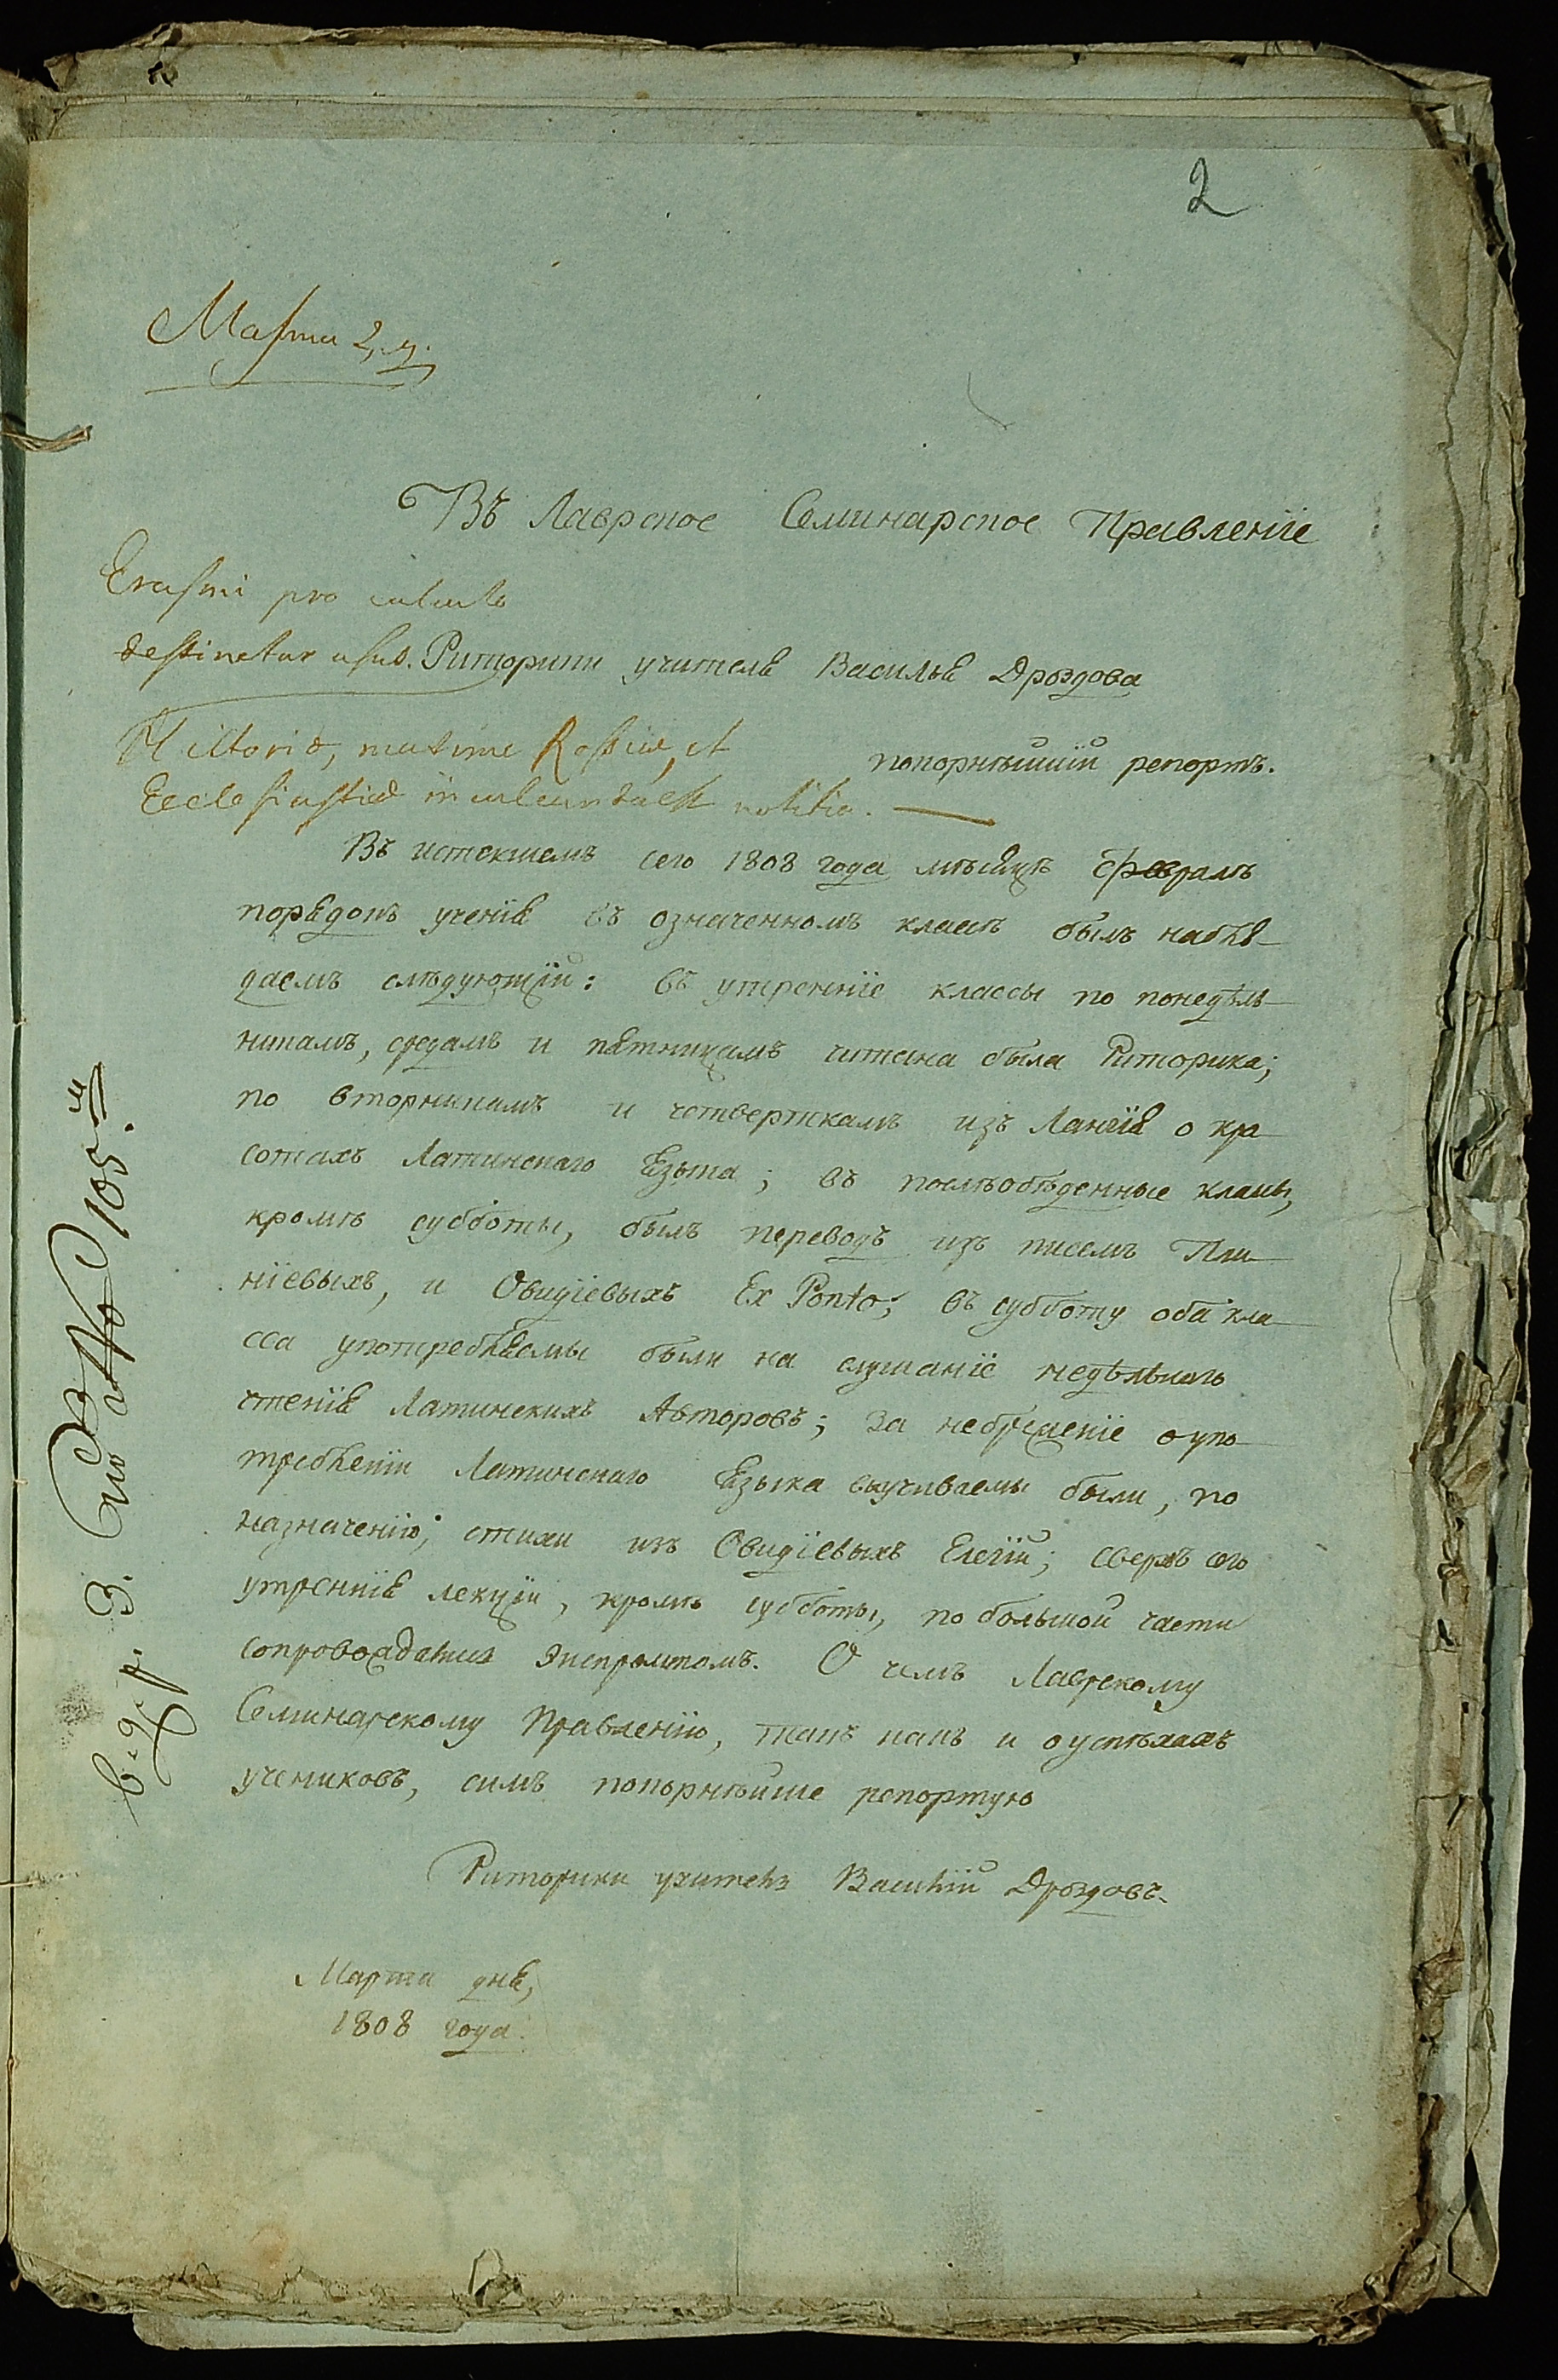 2
Марта 2, д.
Въ Лаврское Семинарское Правленіе
Erasmi pro
destinetur usus. Риторики учителя Василья Дроздова
Historiae, maxime Rossicae, et покорнѣйшій репортъ.
Ecclesiasticae inculcanda est notitia.
Въ истекшемъ сего 1808 года мѣсяцѣ февралѣ
порядокъ ученія въ означенномъ классѣ былъ наблю-
даемъ слѣдующій: въ утренніе классы по понедѣль-
никамъ, средамъ и пятницамъ читана была Риторика;
по вторникамъ и четверткамъ изъ Лангія о кра-
сотахъ Латинскаго Языка; въ послѣобѣденные классы,
кромѣ субботы, былъ переводъ изъ писемъ Пли-
ніевыхъ, и Овидіевыхъ Ex Ponto; въ субботу оба кла-
сса употребляемы были на слушаніе недѣльнаго
чтенія Латинскихъ Авторовъ; за небреженіе о упо-
требленіи Латинскаго Языка выучиваемы были, по
назначенію, стихи изъ Овидіевыхъ Елегій; сверхъ сего
утреннія лекціи, кромѣ субботы, по большой части
сопровождались экспромтомъ. О чемъ Лаврскому
Семинарскому Правленію, такъ какъ и о успѣхахъ
учениковъ, симъ покорнѣйше репортую
Риторики учитель Василій Дроздовъ.
Марта дня,
1808 года.
No 105.й